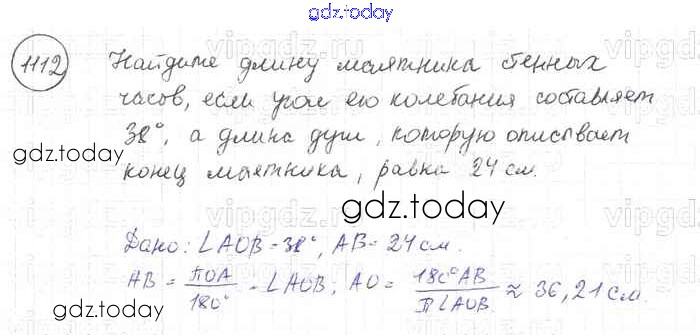 gdz.today
1112 Найдите длину маятника стенных
часов, если угол его колебания составляет
38°, а длина дуги, которую описывает
gdz.today
конец маятника, равна 24 см.
gdz.today
Дано: ∠AOB = 38°, AB = 24 см.
AB = ПOA/180° · ∠AOB; AO = 180°AB/П∠AOB ≈ 36,21 см.
gdz.today